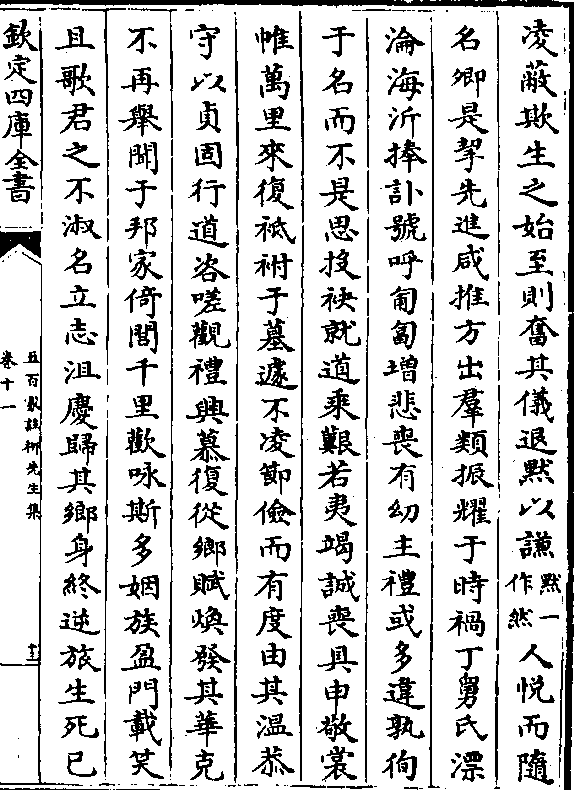 凌蔽欺生之始至則奮其儀退默以謙默一作然人悅而隨
名卿是挈先進咸推方出羣類振耀于時禍丁舅氏漂
淪海沂捧訃號呼匍匐增悲喪有幼主禮或多違孰徇
于名而不是思投袂就道乘艱若夷竭誠喪具申敬裳
帷萬里來復祗祔于墓遽不凌節儉而有度由其溫恭
守以貞固行道咨嗟觀禮興慕復從鄉賦煥發其華克
不再舉聞于邦家倚閭千里歡咏斯多姻族盈門載笑
且歌君之不淑名立志沮慶歸其鄉身終逆旅生死已
欽定四庫全書
五百家註柳先生集
卷十一